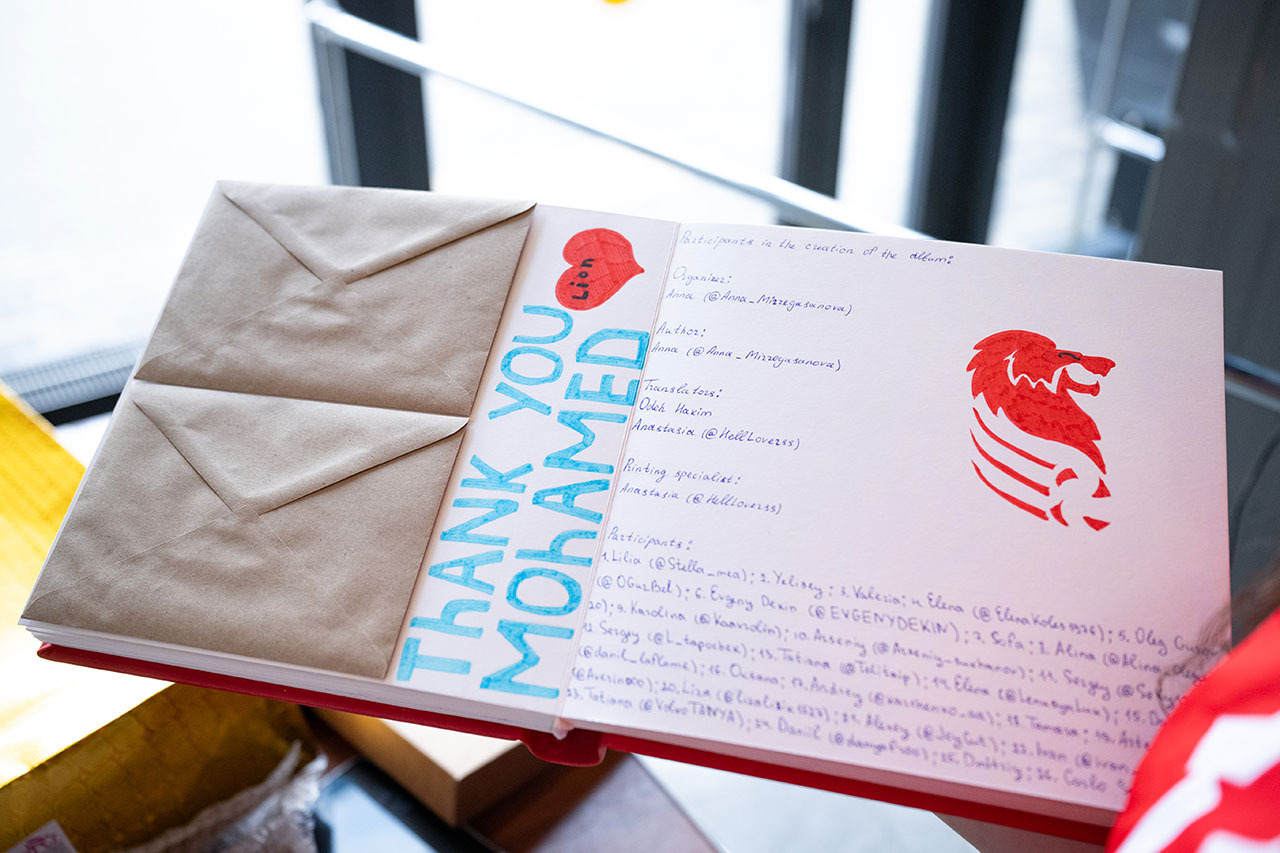 Lion
THANK YOU
MOhAMED
Participants in the creation of the album:
Organizer:
Anna (@Anna_Mirzegasanova)
Author:
Anna (@Anna_Mirzegasanova)
Translators:
Odeh Hakim
Anastasia (@HellLoverss)
Printing specialist:
Anastasia (@HellLoverss)
Participants:
1. Lilia (@Stella_mea); 2. Yelisey; 3. Valeria; 4. Elena (@ElenaKoles1976); 5. Oleg
(@OGuzBel); 6. Evgeny Dekin (@EVGENYDEKIN); 7. Sofa; 8. Alina
9. Karolina (@Kaarolin); 10. Arseniy 11. Sergey
12. Sergey (@L_tapochek); 13. Tatiana 14. Elena 15.
(@danil_laflame); 16. Oksana; 17. Andrey 18. Tamara; 19.
20. Liza 21. Alexey 22. Ivan
23. Tatiana (@VolvoTANYA); 24. Danil 25. Dmitriy; 26. Carlo